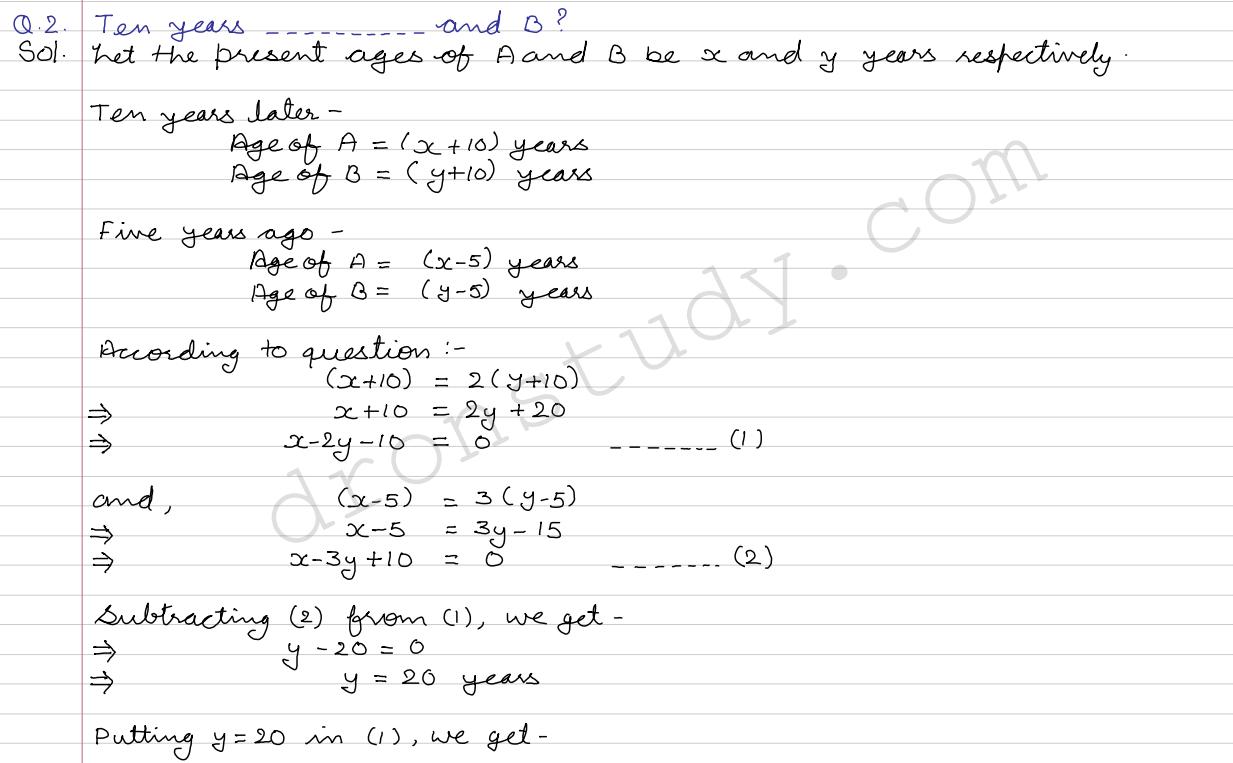 Q.2. Ten years ---------- and B?
Sol. Let the present ages of A and B be x and y years respectively.
Ten years later -
Age of A = (x+10) years
Age of B = (y+10) years
Five years ago -
Age of A = (x-5) years
Age of B = (y-5) years
According to question :-
(x+10) = 2(y+10)
⇒ x+10 = 2y+20
⇒ x-2y-10 = 0 ------- (1)
and, (x-5) = 3(y-5)
⇒ x-5 = 3y-15
⇒ x-3y+10 = 0 ------- (2)
Subtracting (2) from (1), we get -
⇒ y-20 = 0
⇒ y = 20 years
Putting y=20 in (1), we get -
dronstudy.com